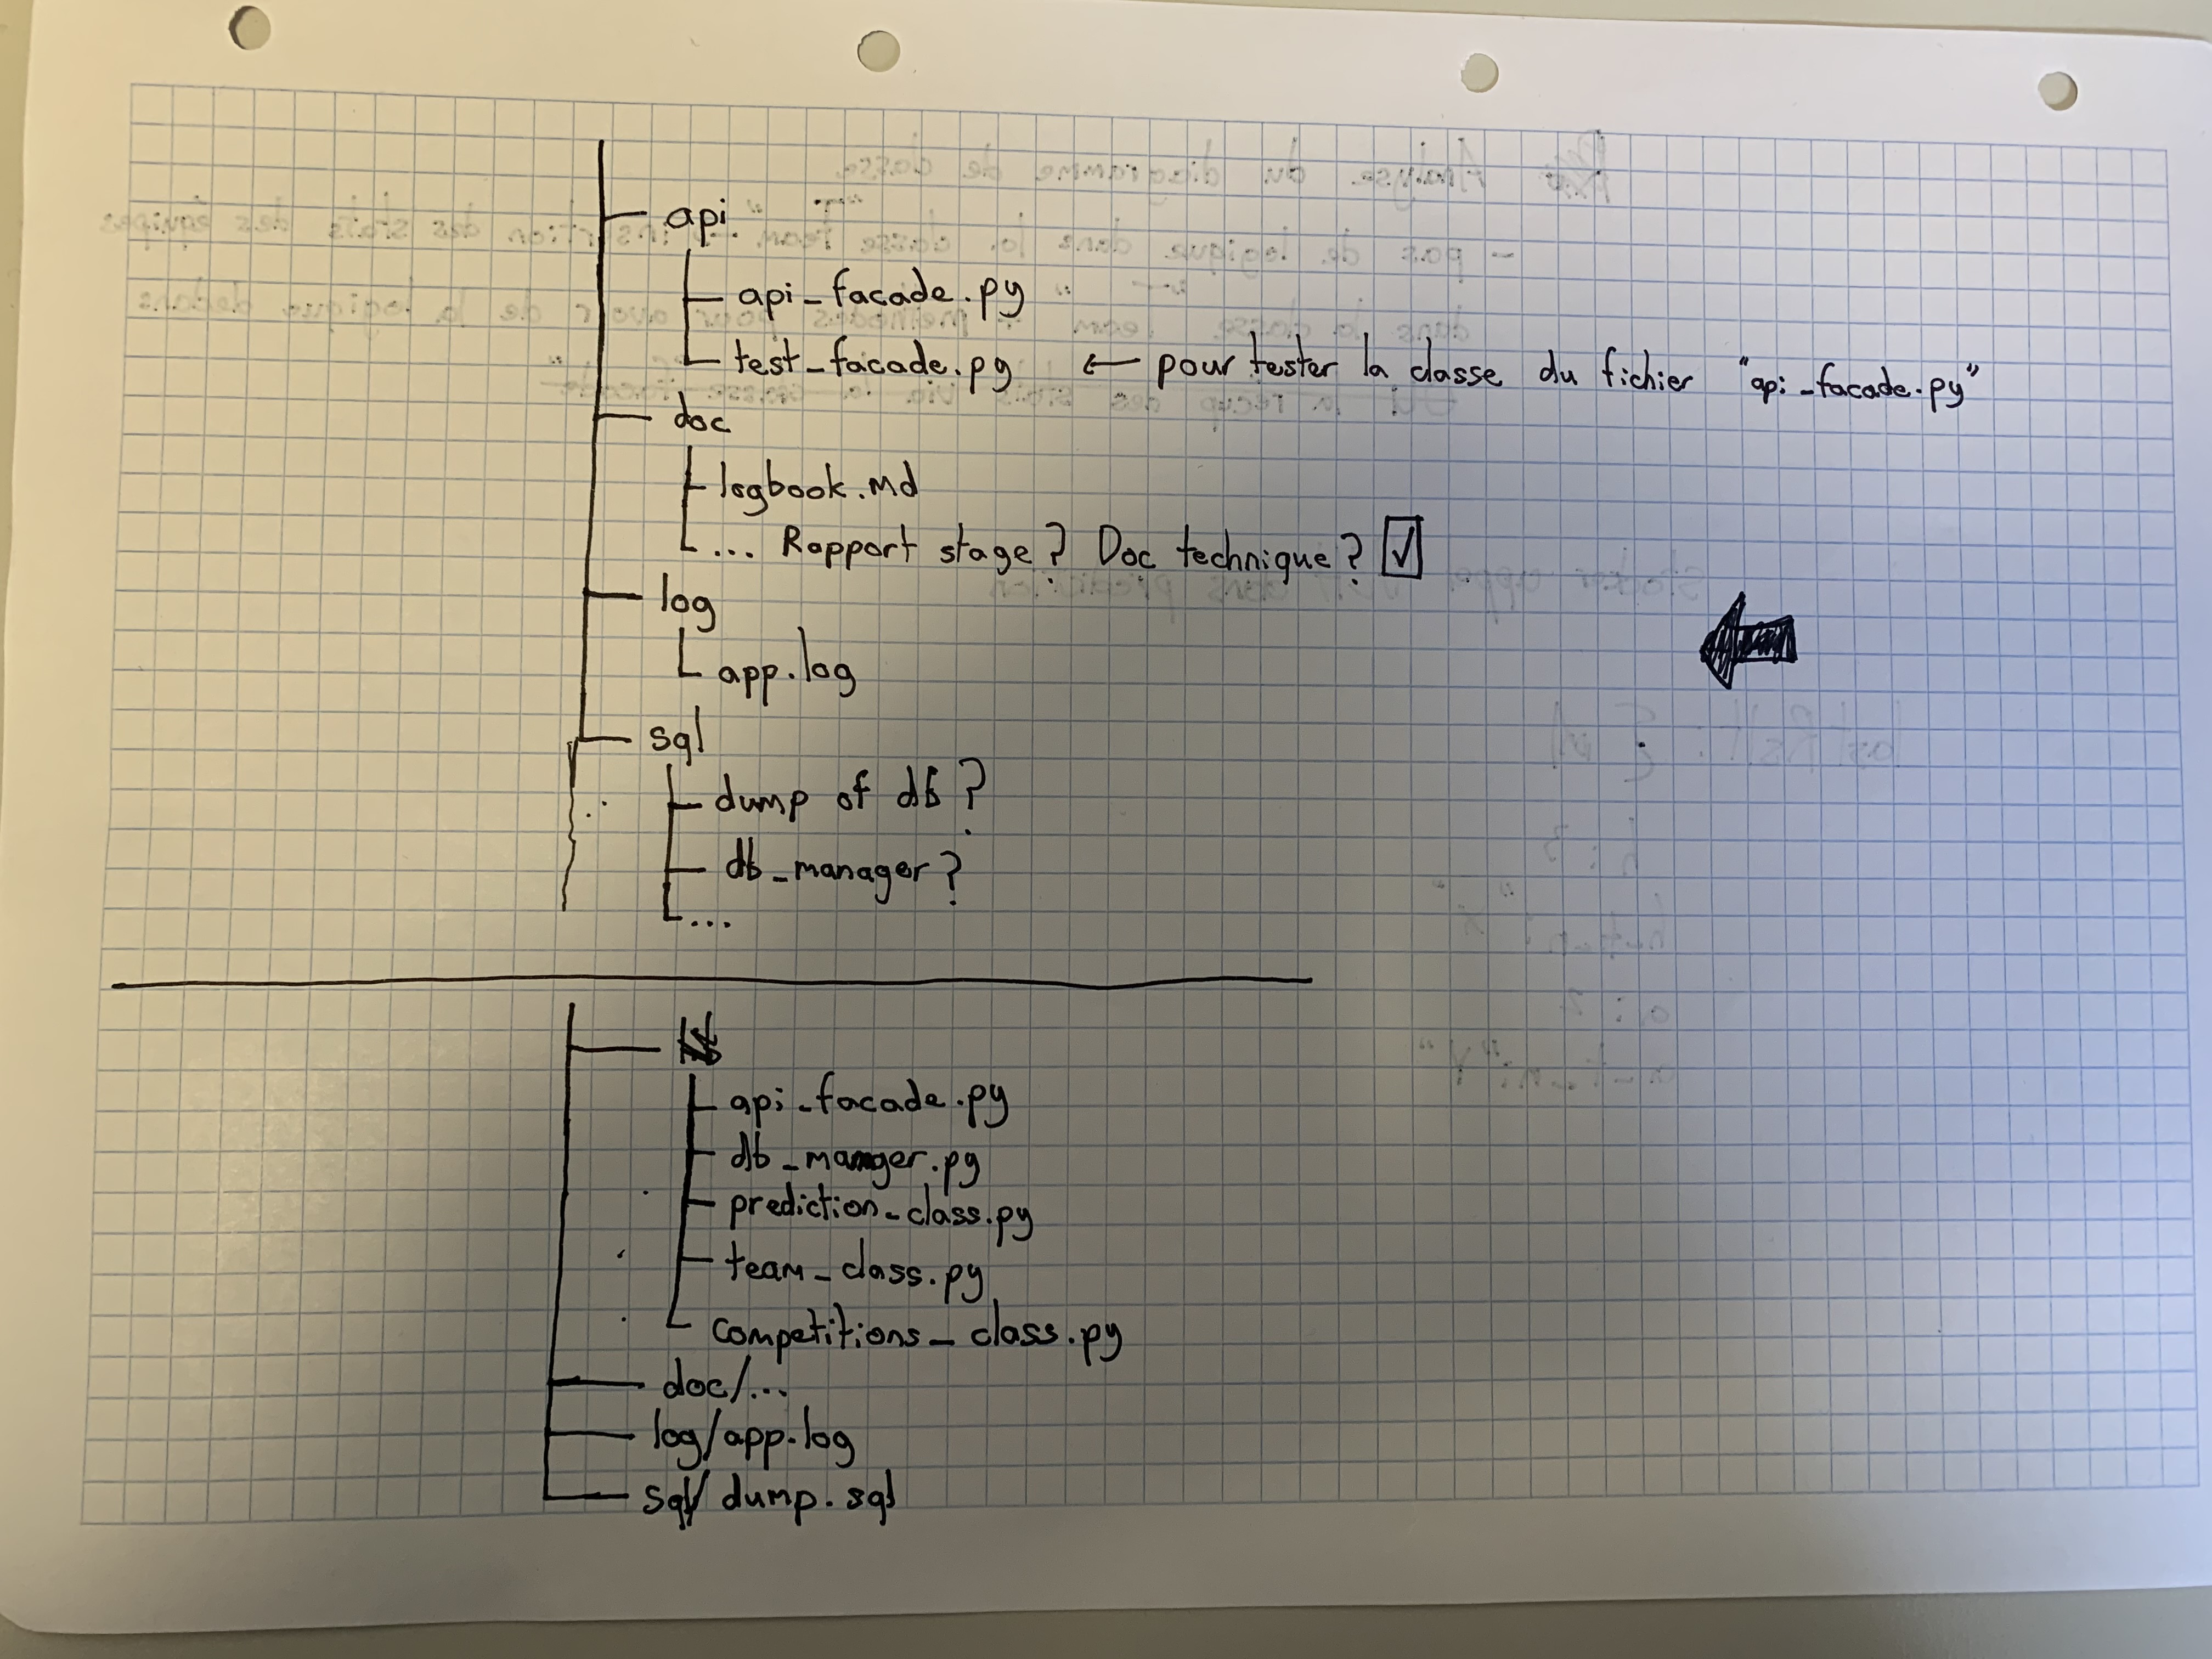 api
api_facade.py
test_facade.py ← pour tester la classe du fichier "api_facade.py"
doc
logbook.md
... Rapport stage? Doc technique? ☑
log
app.log
sql
dump of db?
db_manager?
...
api_facade.py
db_manger.py
prediction_class.py
team_class.py
competitions_class.py
doc/...
log/app.log
sql/dump.sql